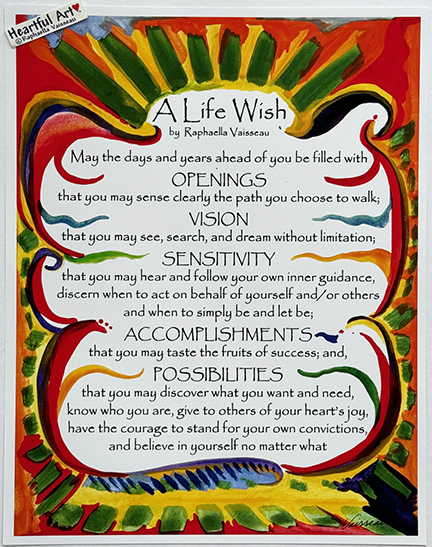 Heartful Art
© Raphaella Vaisseau
A Life Wish
by Raphaella Vaisseau
May the days and years ahead of you be filled with
OPENINGS
that you may sense clearly the path you choose to walk;
VISION
that you may see, search, and dream without limitation;
SENSITIVITY
that you may hear and follow your own inner guidance,
discern when to act on behalf of yourself and/or others
and when to simply be and let be;
ACCOMPLISHMENTS
that you may taste the fruits of success; and,
POSSIBILITIES
that you may discover what you want and need,
know who you are, give to others of your heart's joy,
have the courage to stand for your own convictions,
and believe in yourself no matter what
Vaisseau